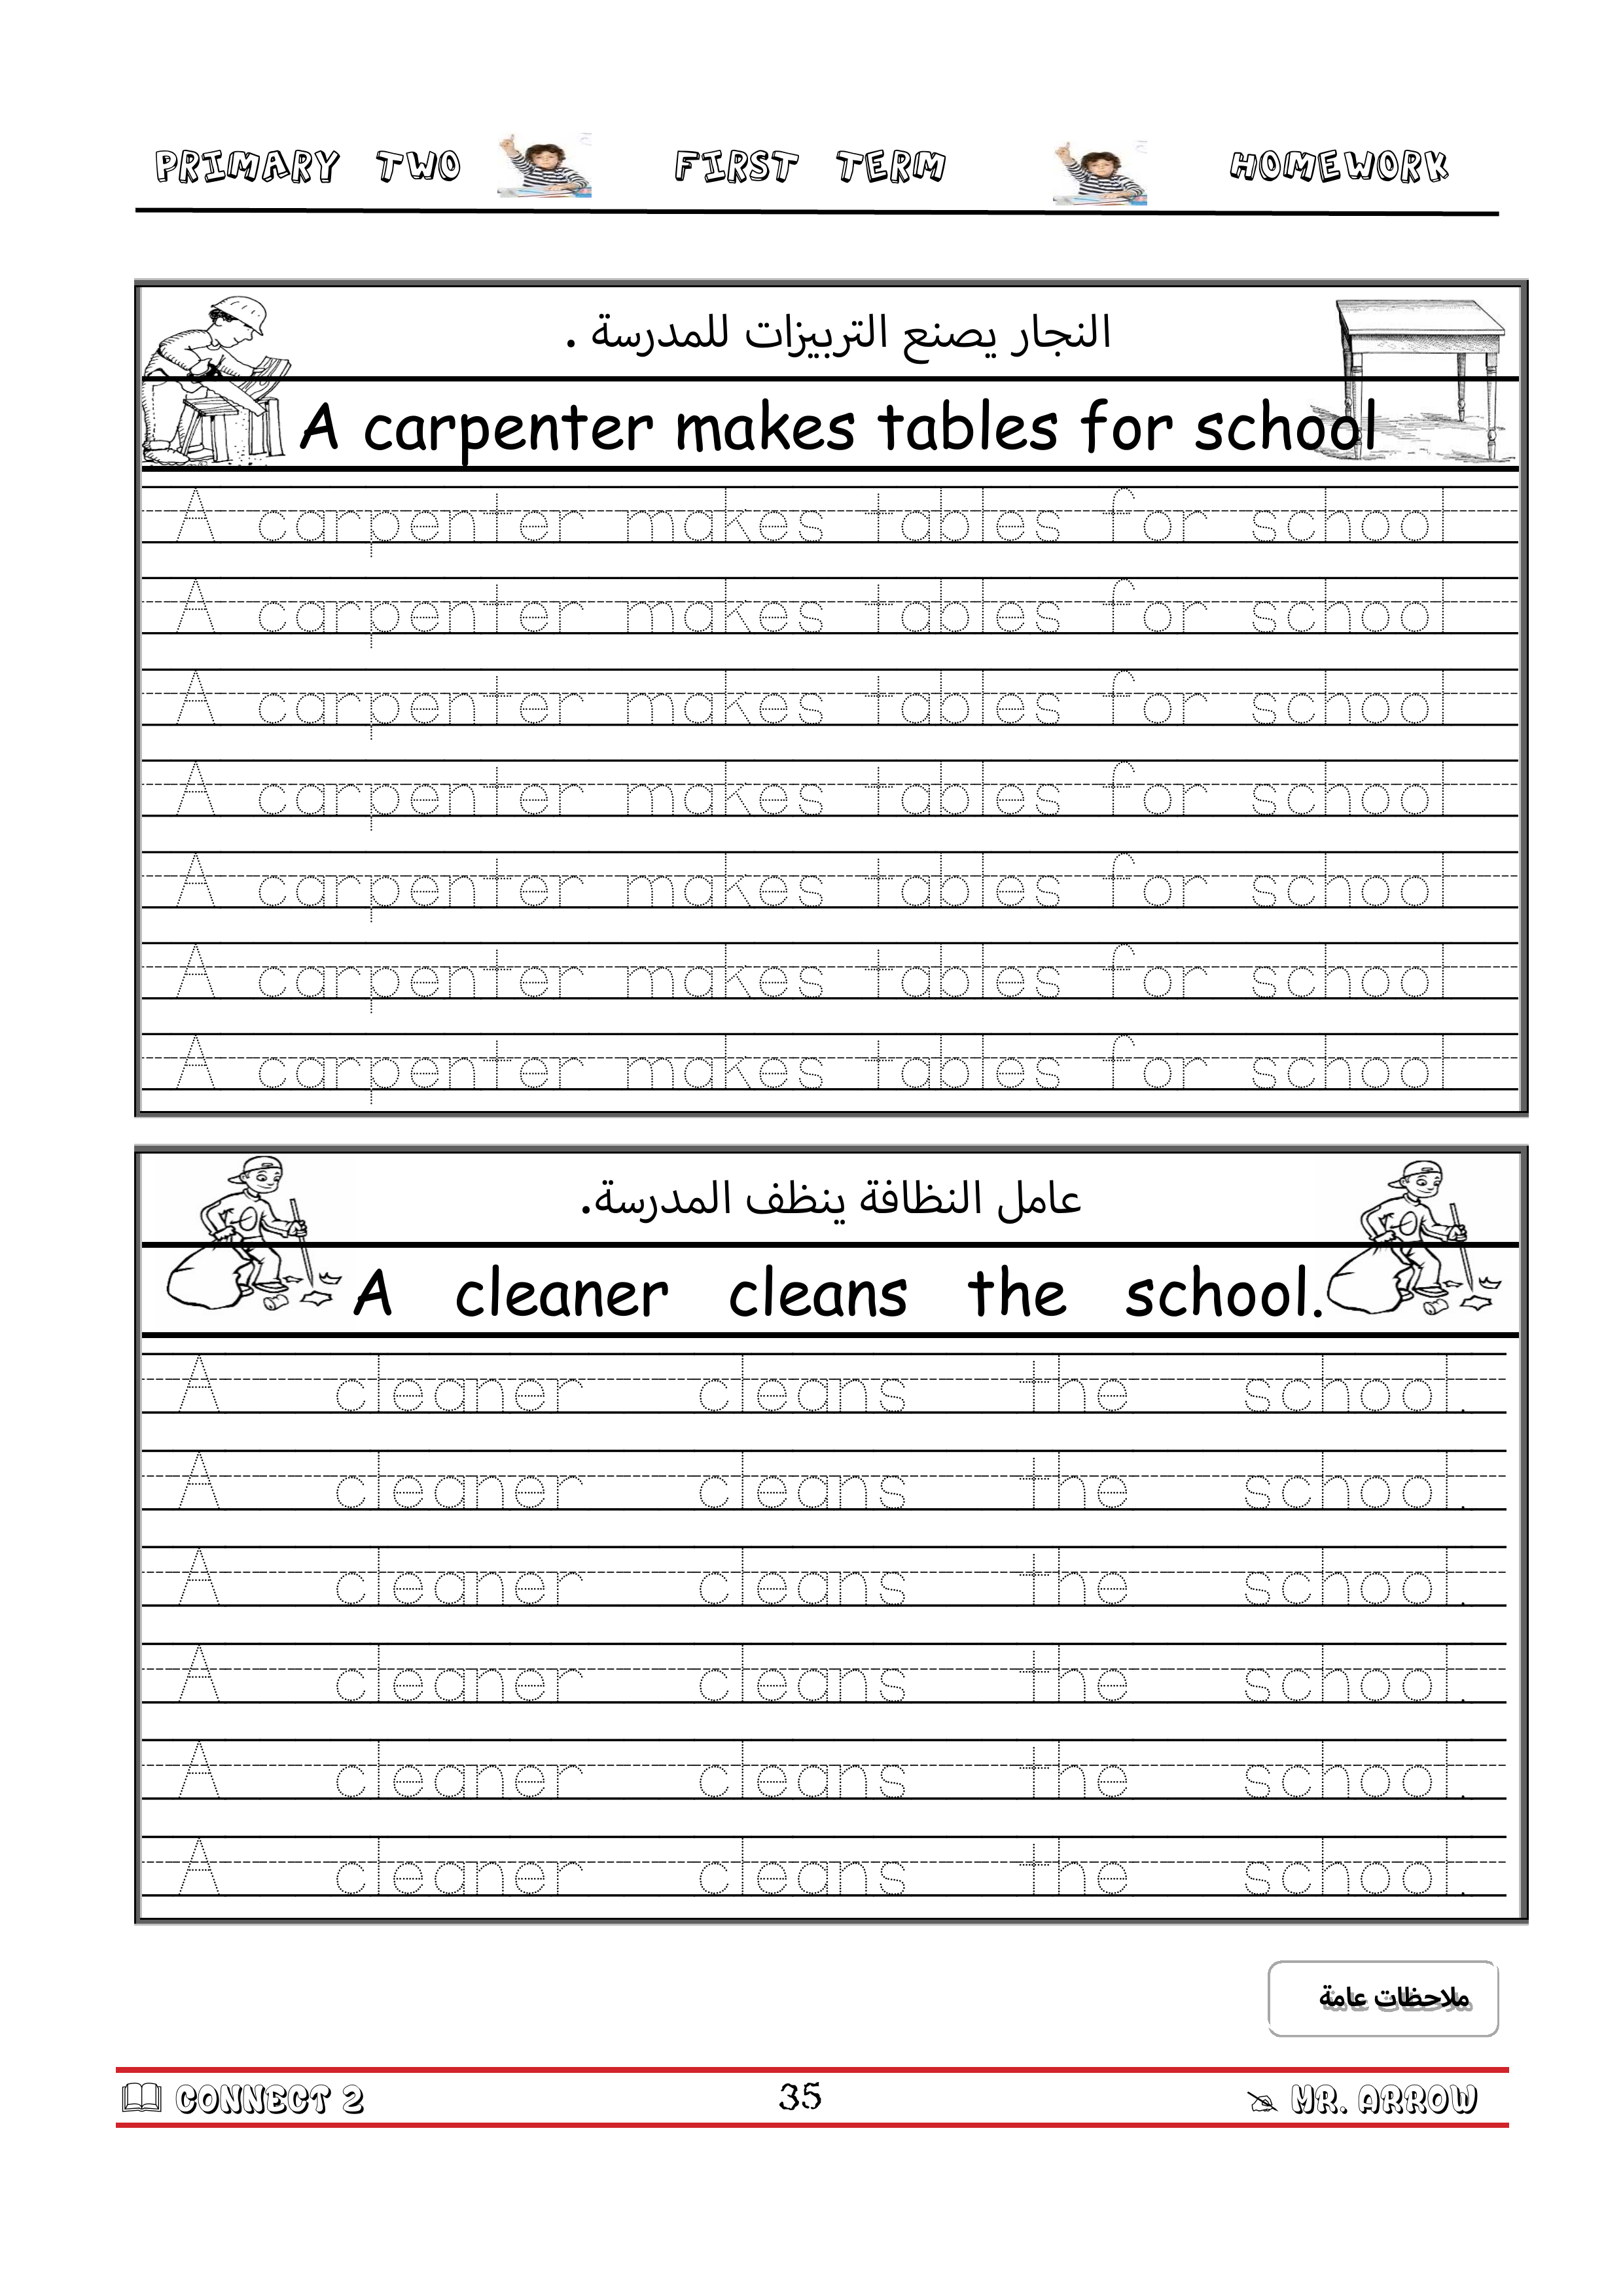 PRIMARY TWO FIRST TERM HOMEWORK
النجار يصنع التربيزات للمدرسة .
A carpenter makes tables for school
A carpenter makes tables for school
A carpenter makes tables for school
A carpenter makes tables for school
A carpenter makes tables for school
A carpenter makes tables for school
A carpenter makes tables for school
A carpenter makes tables for school
عامل النظافة ينظف المدرسة.
A cleaner cleans the school.
A cleaner cleans the school.
A cleaner cleans the school.
A cleaner cleans the school.
A cleaner cleans the school.
A cleaner cleans the school.
A cleaner cleans the school.
ملاحظات عامة
CONNECT 2 35 MR. ARROW